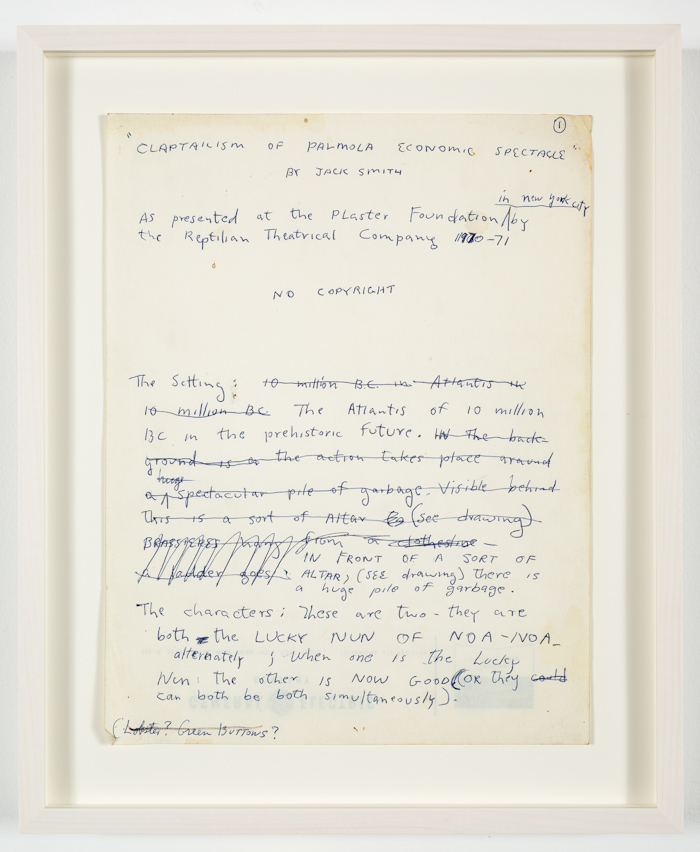 1
"CLAPTAILISM OF PALMOLA ECONOMIC SPECTACLE"
BY JACK SMITH
in new york city
As presented at the Plaster Foundation / by
the Reptilian Theatrical Company 1970-71
NO COPYRIGHT
The Setting: 10 million B.C. in Atlantis in
10 million BC The Atlantis of 10 million
BC in the prehistoric future. IN The back-
ground is a the action takes place around
huge
a spectacular pile of garbage. Visible behind
This is a sort of Altar (see drawing)
BRASSIERES hang from a clothesline -
a ladder goes IN FRONT OF A SORT OF
ALTAR, (SEE drawing) there is
a huge pile of garbage.
The characters; These are two - they are
both the LUCKY NUN OF NOA-NOA
alternately; when one is the Lucky
Nun: the other is NOW GOOD (OR they could
can both be both simultaneously).
(Lobster? Green Buttons?